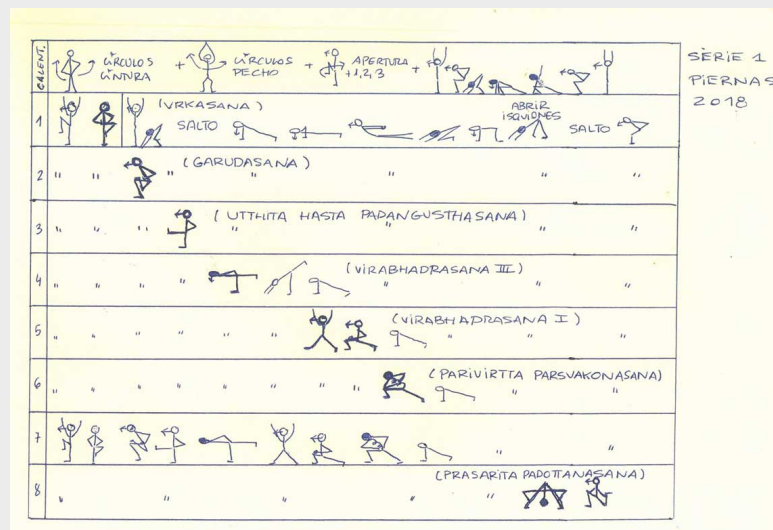 CALENT. CÍRCULOS CINTURA + CÍRCULOS PECHO + APERTURA +1,2,3 +
SERIE 1
PIERNAS
2018
1 (VRKASANA) SALTO ABRIR ISQUIONES SALTO
2 " " (GARUDASANA) " " " " "
3 " " " (UTTHITA HASTA PADANGUSTHASANA) " " " "
4 " " " " (VIRABHADRASANA III) " " "
5 " " " " " " (VIRABHADRASANA I) " " "
6 " " " " " " " " (PARIVIRTTA PARSVAKONASANA) " "
7 " "
8 " " " " " (PRASARITA PADOTTANASANA)